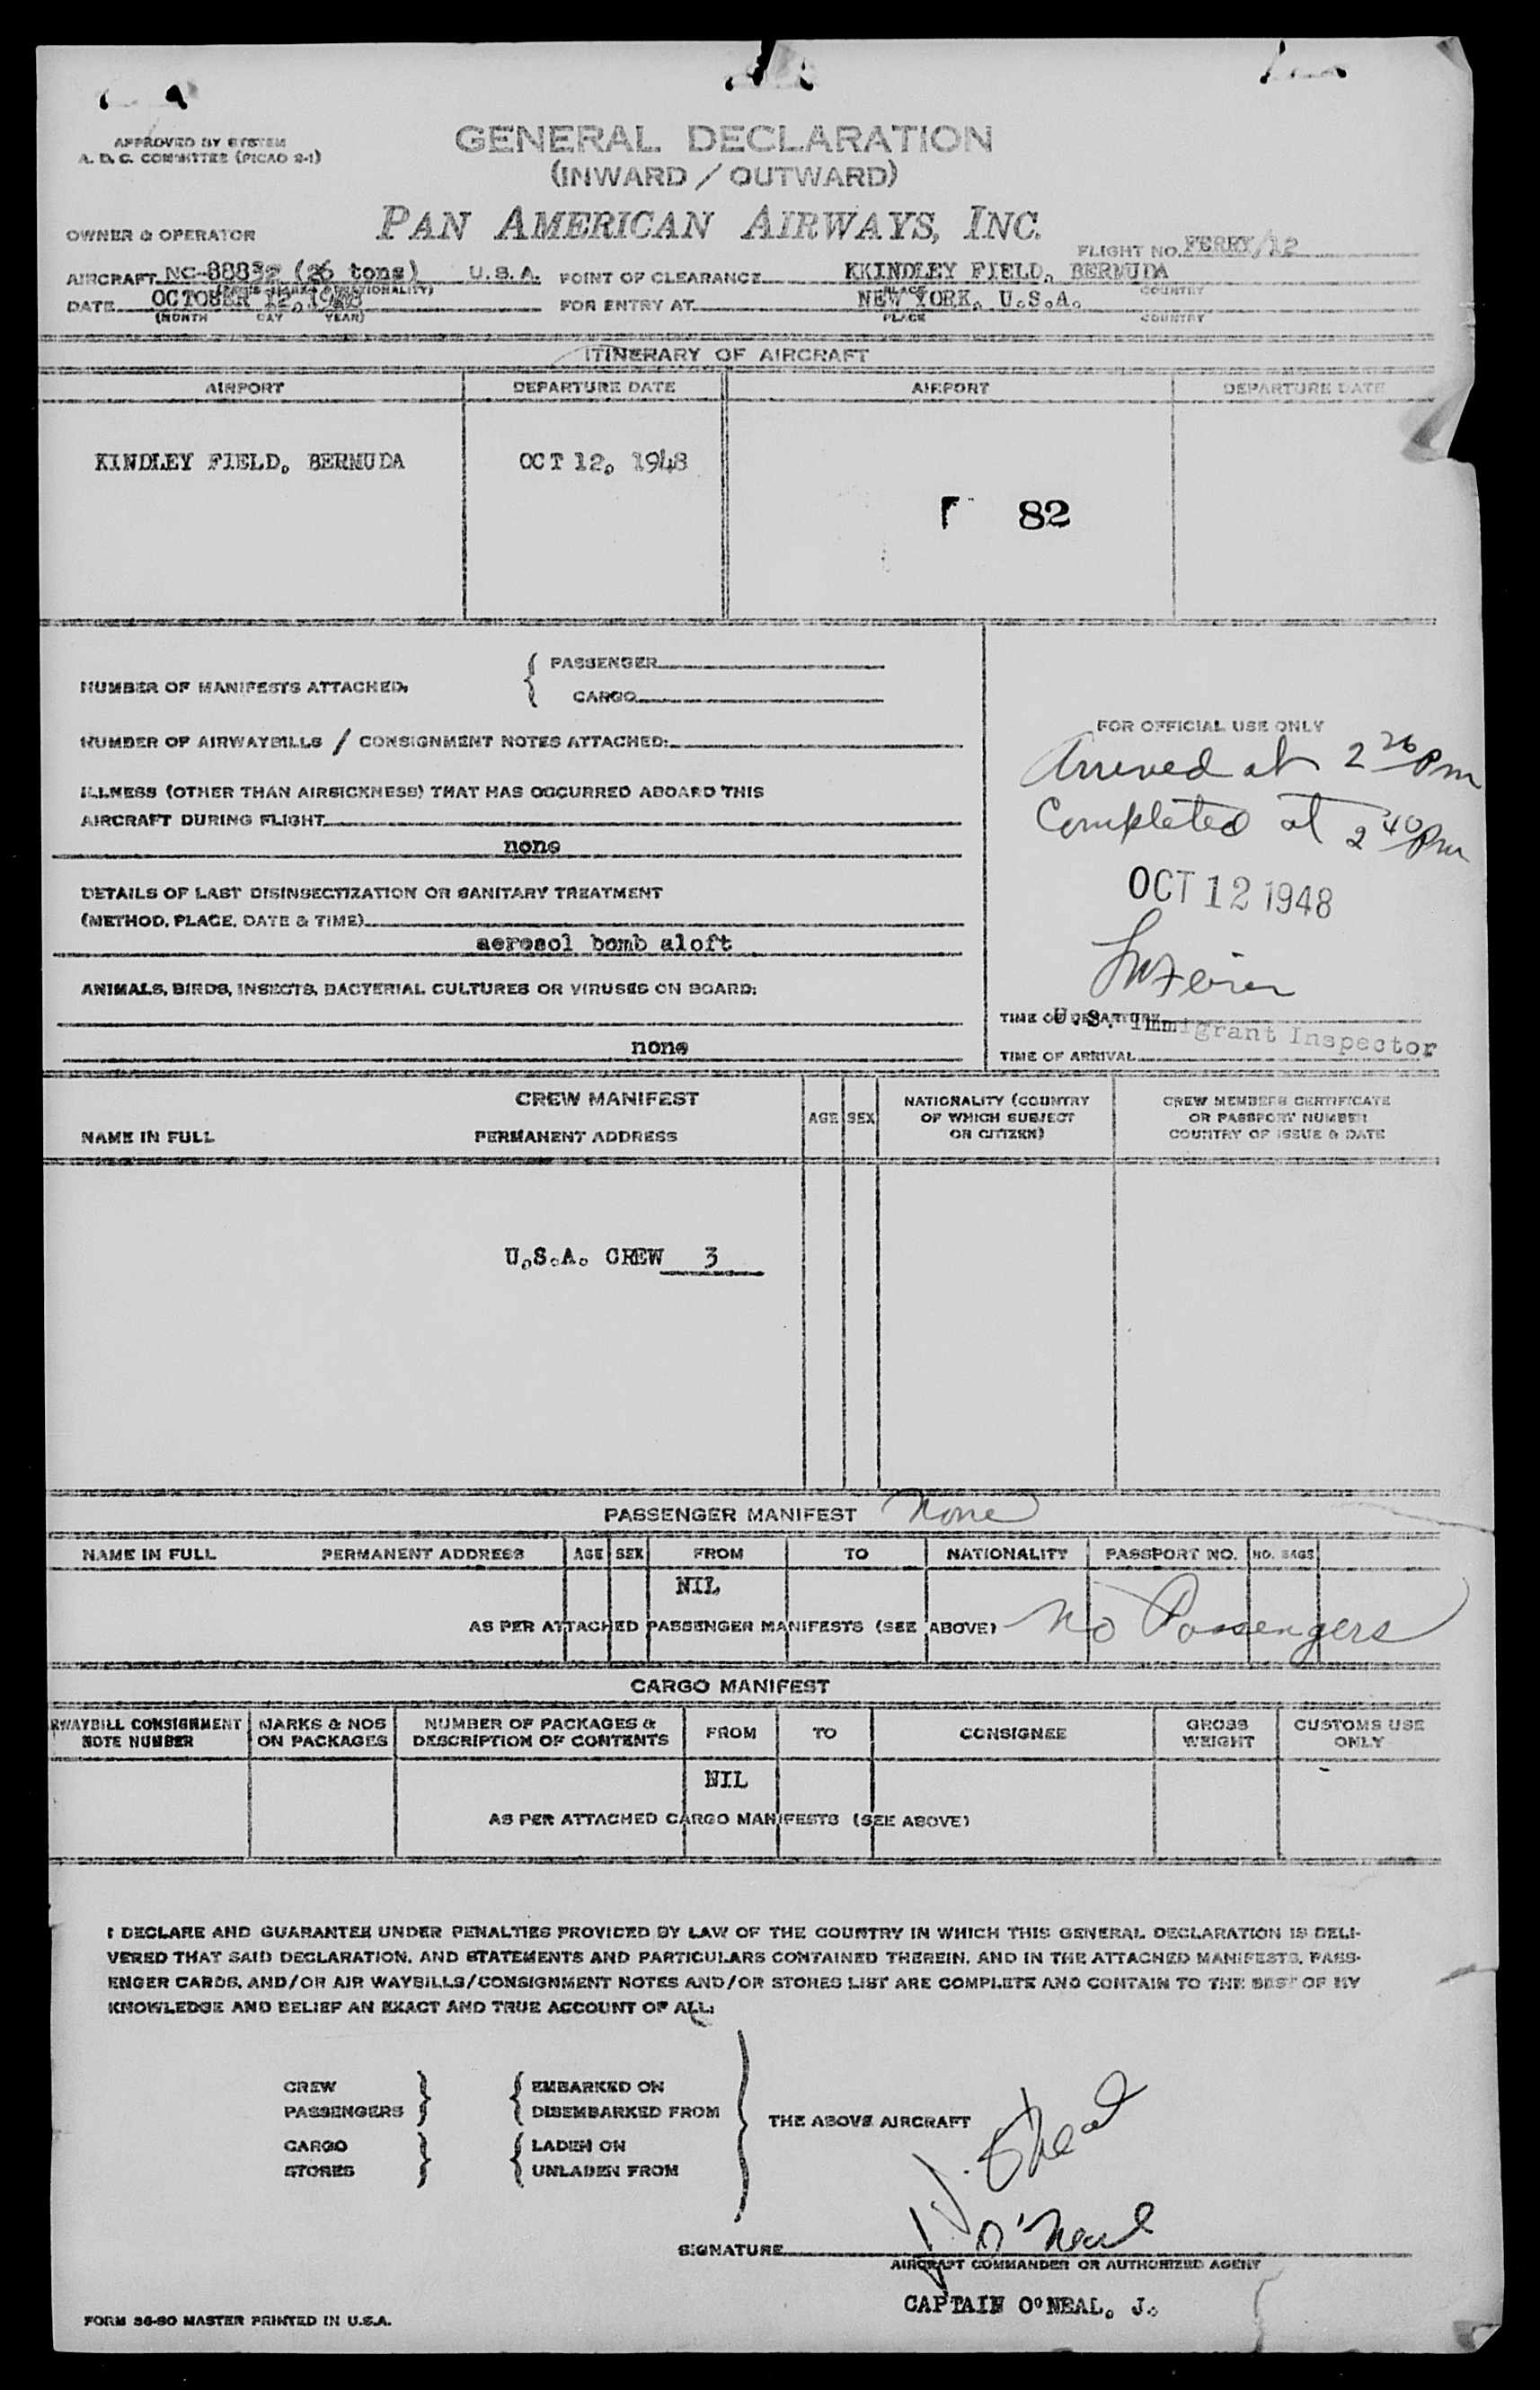 APPROVED BY SYSTEM
A. D. C. COMMITTEE (PICAO 2-1)
GENERAL DECLARATION
(INWARD / OUTWARD)
OWNER & OPERATOR
PAN AMERICAN AIRWAYS, INC.
FLIGHT NO. FERRY/12
AIRCRAFT NC-88832 (26 tons) U.S.A. POINT OF CLEARANCE KKINDLEY FIELD, BERMUDA
NATIONALITY) PLACE COUNTRY
DATE OCTOBER 12, 1948 FOR ENTRY AT NEW YORK, U.S.A.
(MONTH DAY YEAR) PLACE COUNTRY
ITINERARY OF AIRCRAFT
AIRPORT DEPARTURE DATE AIRPORT DEPARTURE DATE
KINDLEY FIELD, BERMUDA OCT 12, 1948
82
NUMBER OF MANIFESTS ATTACHED,
PASSENGER
CARGO
NUMBER OF AIRWAYBILLS / CONSIGNMENT NOTES ATTACHED:
ILLNESS (OTHER THAN AIRSICKNESS) THAT HAS OCCURRED ABOARD THIS
AIRCRAFT DURING FLIGHT
none
DETAILS OF LAST DISINSECTIZATION OR SANITARY TREATMENT
(METHOD, PLACE, DATE & TIME)
aerosol bomb aloft
ANIMALS, BIRDS, INSECTS, BACTERIAL CULTURES OR VIRUSES ON BOARD:
none
FOR OFFICIAL USE ONLY
Arrived at 2 26 Pm
Completed at 2 40 Pm
OCT 12 1948
TIME OF DEPARTURE
U.S. Immigrant Inspector
TIME OF ARRIVAL
CREW MANIFEST
NAME IN FULL PERMANENT ADDRESS AGE SEX
NATIONALITY (COUNTRY
OF WHICH SUBJECT
OR CITIZEN)
CREW MEMBERS CERTIFICATE
OR PASSPORT NUMBER
COUNTRY OF ISSUE & DATE
U.S.A. CREW 3
PASSENGER MANIFEST None
NAME IN FULL PERMANENT ADDRESS AGE SEX FROM TO NATIONALITY PASSPORT NO. NO. BAGS
NIL
AS PER ATTACHED PASSENGER MANIFESTS (SEE ABOVE) No Passengers
CARGO MANIFEST
RWAYBILL CONSIGNMENT
NOTE NUMBER
MARKS & NOS
ON PACKAGES
NUMBER OF PACKAGES &
DESCRIPTION OF CONTENTS
FROM TO CONSIGNEE
GROSS
WEIGHT
CUSTOMS USE
ONLY
NIL
AS PER ATTACHED CARGO MANIFESTS (SEE ABOVE)
I DECLARE AND GUARANTEE UNDER PENALTIES PROVIDED BY LAW OF THE COUNTRY IN WHICH THIS GENERAL DECLARATION IS DELI-
VERED THAT SAID DECLARATION, AND STATEMENTS AND PARTICULARS CONTAINED THEREIN, AND IN THE ATTACHED MANIFESTS, PASS-
ENGER CARDS, AND/OR AIR WAYBILLS/CONSIGNMENT NOTES AND/OR STORES LIST ARE COMPLETE AND CONTAIN TO THE BEST OF MY
KNOWLEDGE AND BELIEF AN EXACT AND TRUE ACCOUNT OF ALL:
CREW EMBARKED ON
PASSENGERS DISEMBARKED FROM
THE ABOVE AIRCRAFT
CARGO LADEN ON
STORES UNLADEN FROM
J. O'Neal
SIGNATURE J O'Neal
AIRCRAFT COMMANDER OR AUTHORIZED AGENT
CAPTAIN O'NEAL, J.
FORM 36-80 MASTER PRINTED IN U.S.A.